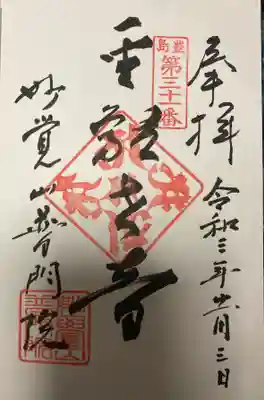 奉拝 令和三年 月三日
豊島
第三十一番
聖観世音
妙覚山普門院